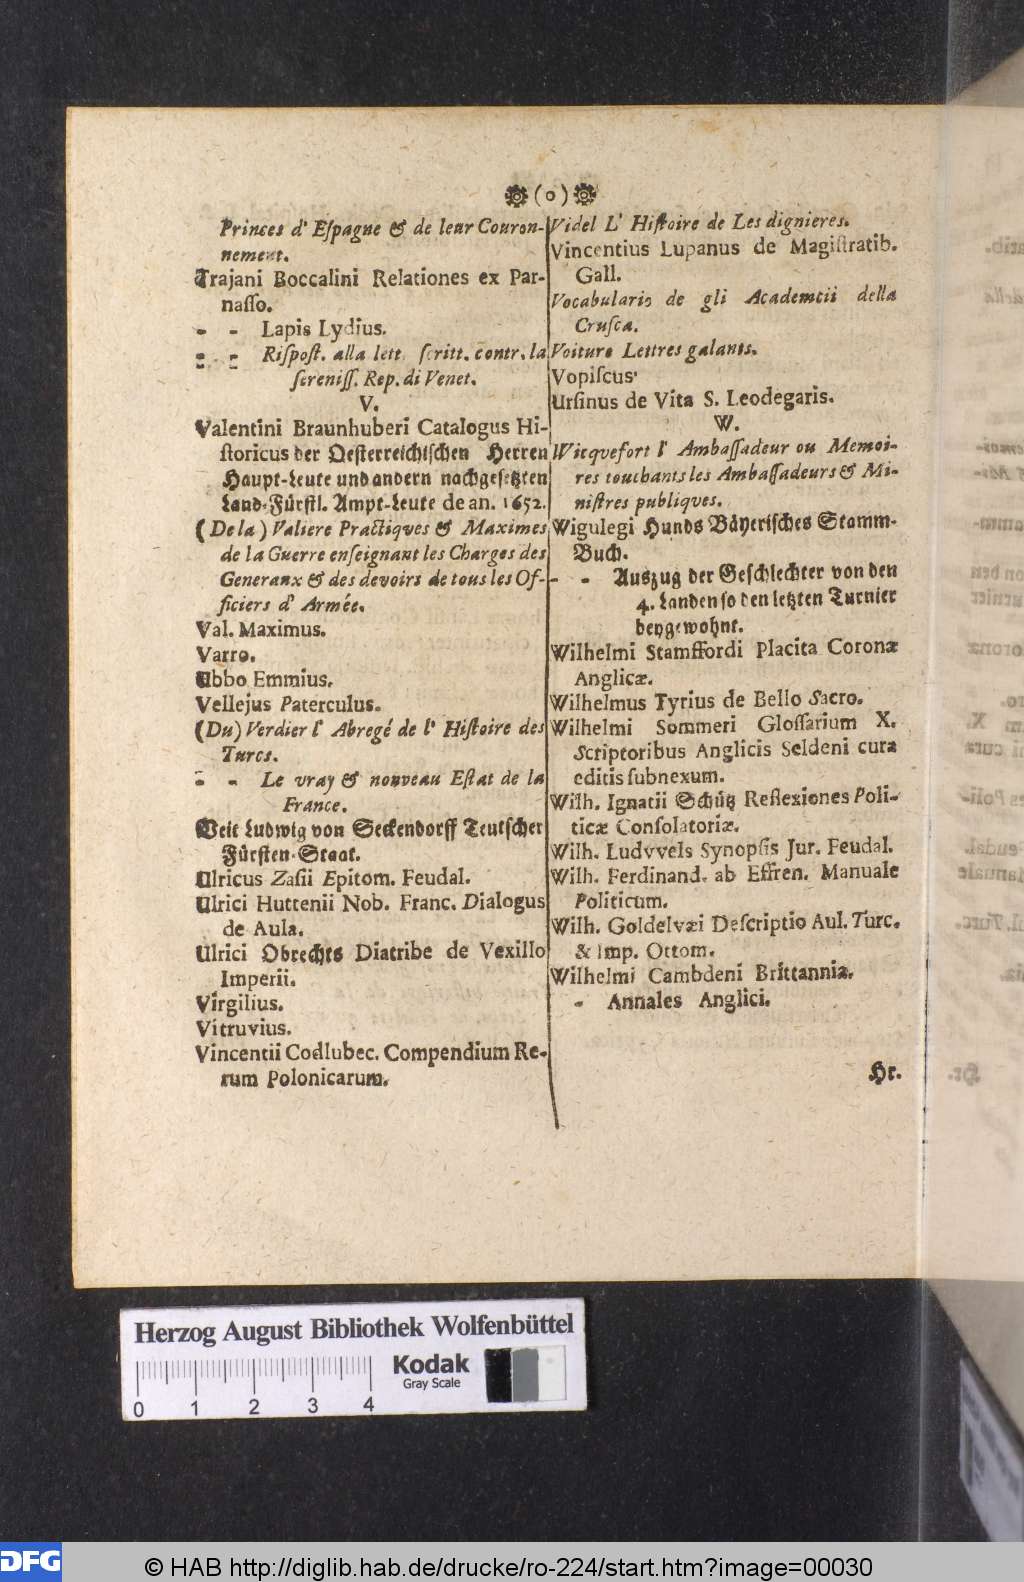 (o)
Princes d' Eſpagne & de leur Couron-
nement.
Trajani Boccalini Relationes ex Par-
naſſo.
- - Lapis Lydius.
- - Riſpoſt. alla lett. ſcritt. contr. la
ſereniſſ. Rep. di Venet.
V.
Valentini Braunhuberi Catalogus Hi-
ſtoricus der Oeſterreichiſchen Herren
Haupt-Leute und andern nachgeſetzten
Land-Fürſtl. Ampt-Leute de an. 1652.
(De la) Valiere Practiques & Maximes
de la Guerre enſeignant les Charges des
Generaux & des devoirs de tous les Of-
ficiers d' Armée.
Val. Maximus.
Varro.
Ubbo Emmius.
Vellejus Paterculus.
(Du) Verdier l' Abregé de l' Hiſtoire des
Turcs.
- - Le vray & nouveau Eſtat de la
France.
Veit Ludwig von Seckendorff Teutſcher
Fürſten-Staat.
Ulricus Zaſii Epitom. Feudal.
Ulrici Huttenii Nob. Franc. Dialogus
de Aula.
Ulrici Obrechts Diatribe de Vexillo
Imperii.
Virgilius.
Vitruvius.
Vincentii Codlubec. Compendium Re-
rum Polonicarum.
Videl L' Hiſtoire de Les dignieres.
Vincentius Lupanus de Magiſtratib.
Gall.
Vocabulario de gli Academcii della
Cruſca.
Voiture Lettres galants.
Vopiſcus.
Urſinus de Vita S. Leodegaris.
W.
Wicquefort l' Ambaſſadeur ou Memoi-
res touchants les Ambaſſadeurs & Mi-
niſtres publiqves.
Wigulegi Hunds Bäyeriſches Stamm-
Buch.
- - Auszug der Geſchlechter von den
4. Landen ſo den letzten Turnier
beygewohnt.
Wilhelmi Stamffordi Placita Coronæ
Anglicæ.
Wilhelmus Tyrius de Bello Sacro.
Wilhelmi Sommeri Gloſſarium X.
Scriptoribus Anglicis Seldeni cura
editis ſubnexum.
Wilh. Ignatii Schütz Reflexiones Poli-
ticæ Conſolatoriæ.
Wilh. Ludvvels Synopſis Jur. Feudal.
Wilh. Ferdinand. ab Effren. Manuale
Politicum.
Wilh. Goldelvæi Deſcriptio Aul. Turc.
& Imp. Ottom.
Wilhelmi Cambdeni Brittannia.
- Annales Anglici.
Hr.
Herzog August Bibliothek Wolfenbüttel
Kodak
Gray Scale
0 1 2 3 4
DFG
© HAB http://diglib.hab.de/drucke/ro-224/start.htm?image=00030